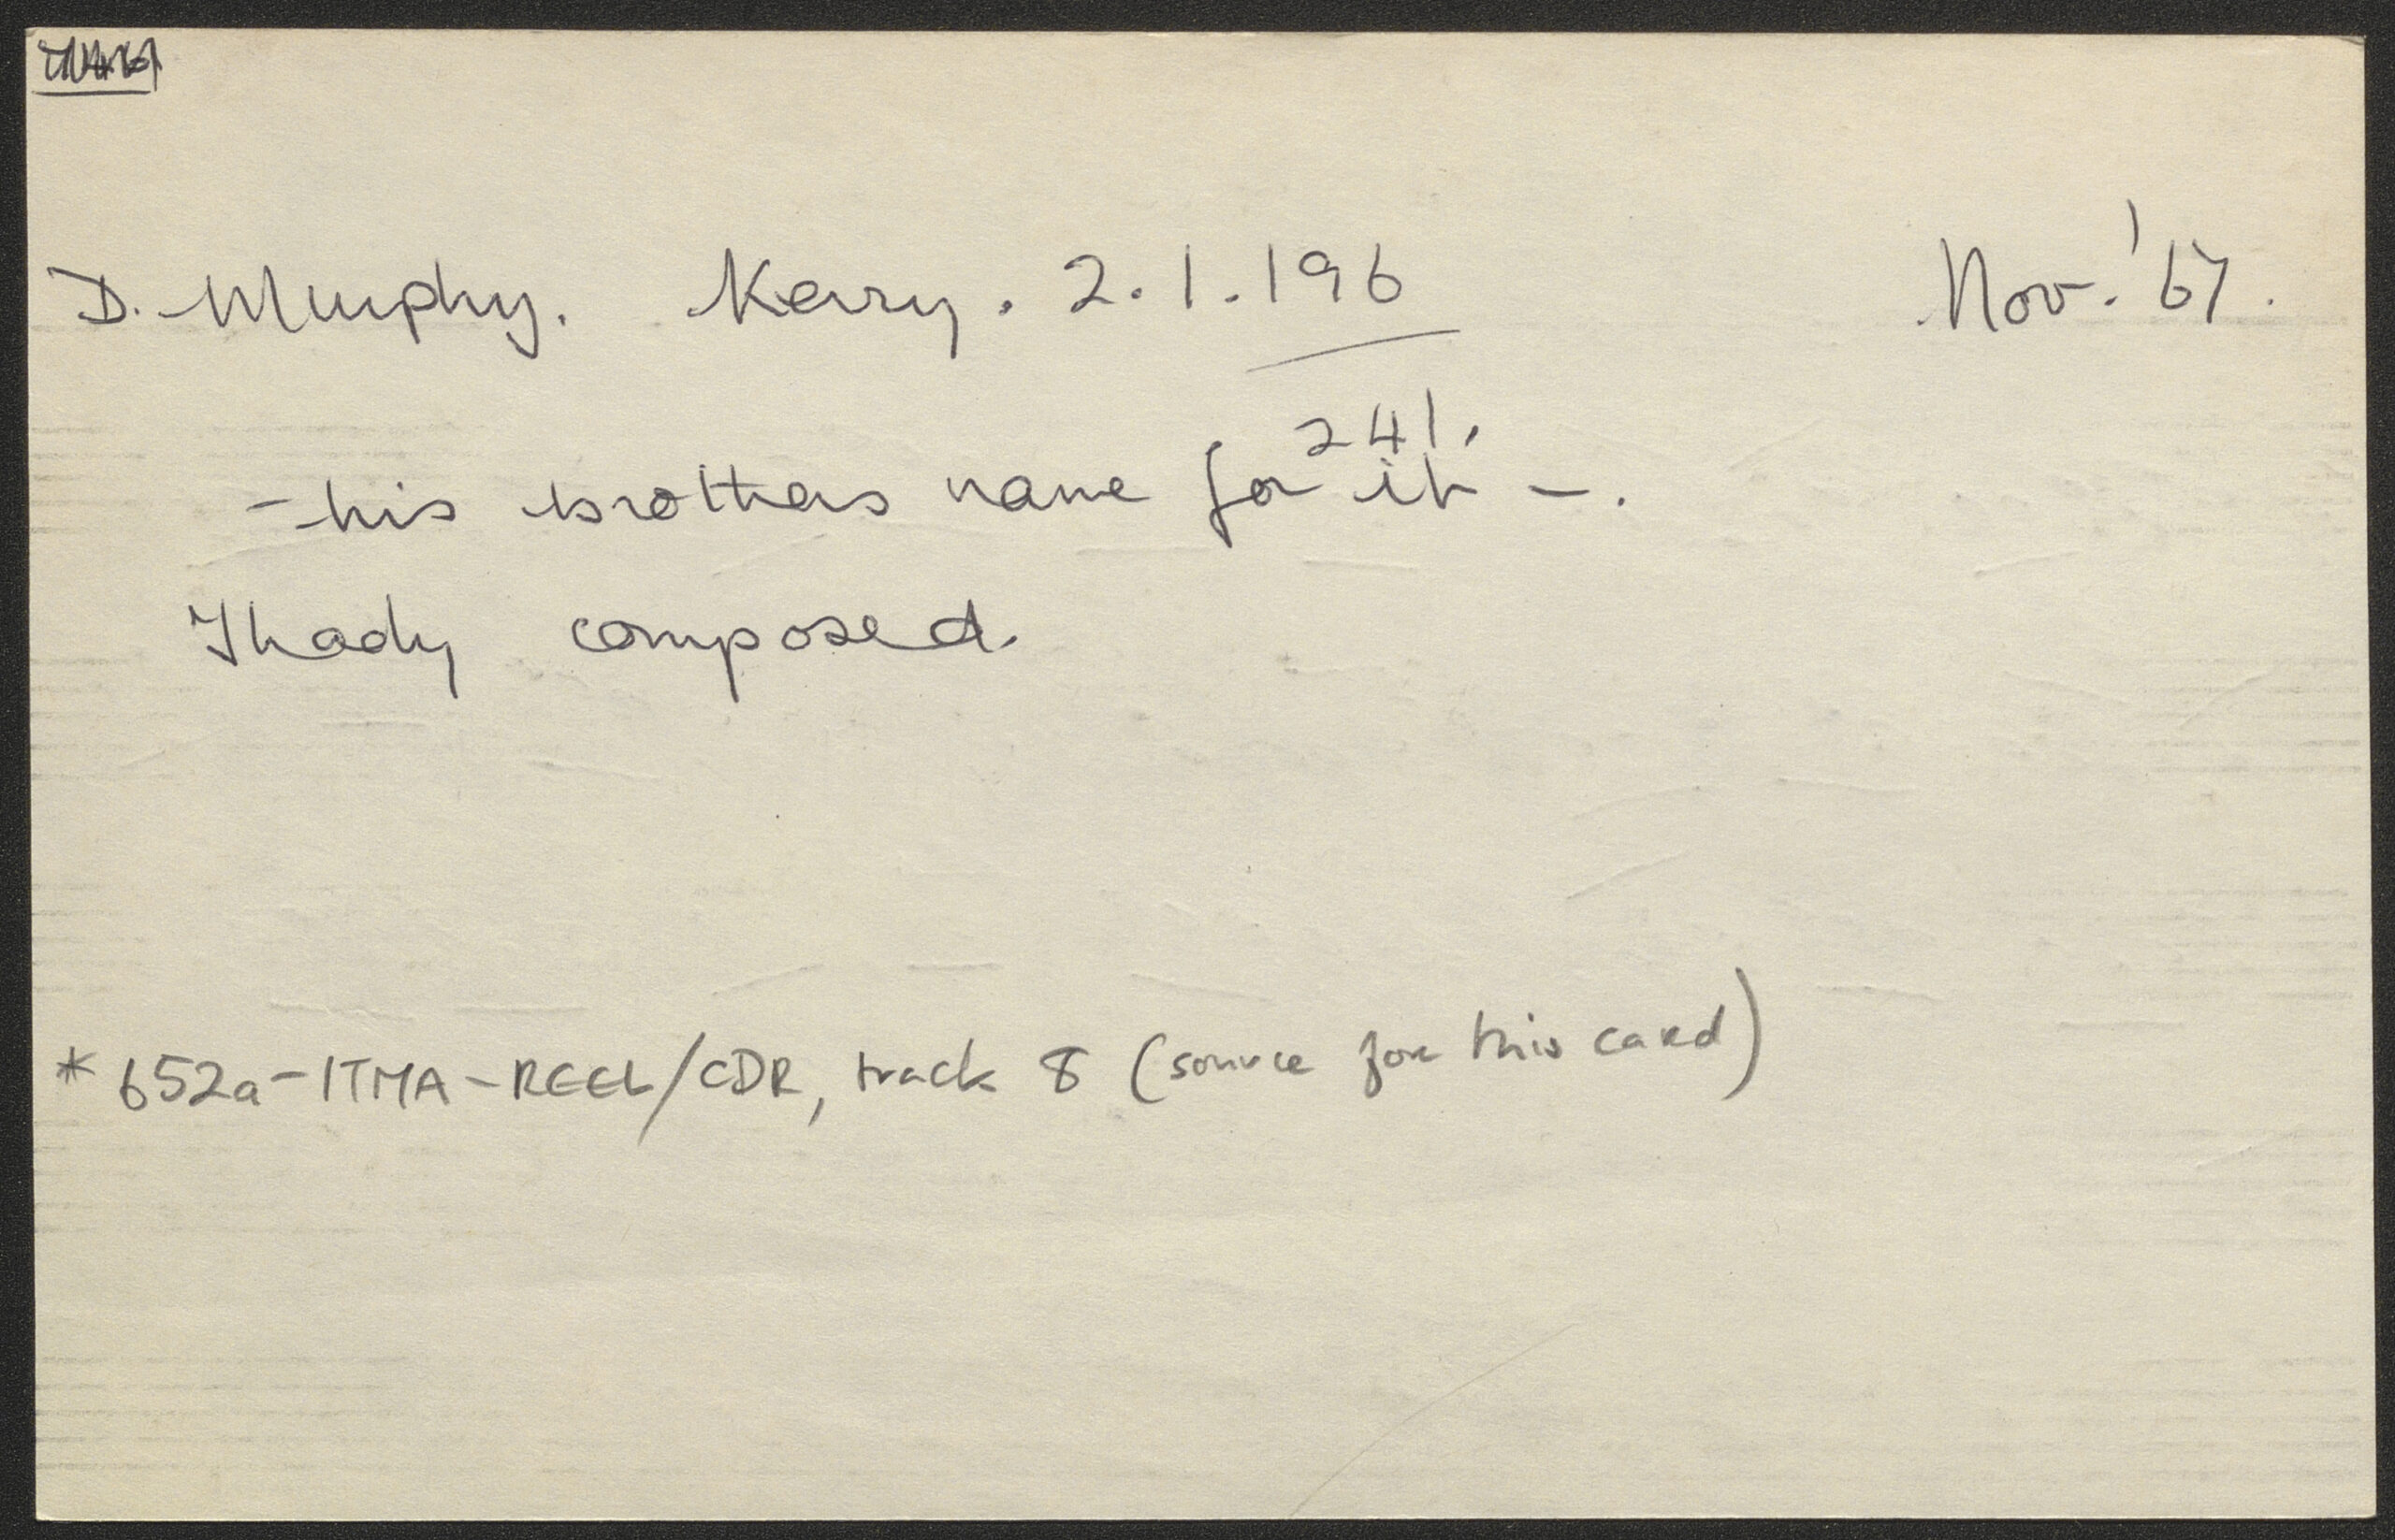 D. Murphy. Kerry. 2.1.196 Nov. '67.
241.
- his brothers name for it -.
Thady composed.
* 652a-ITMA-REEL/CDR, track 8 (source for this card)